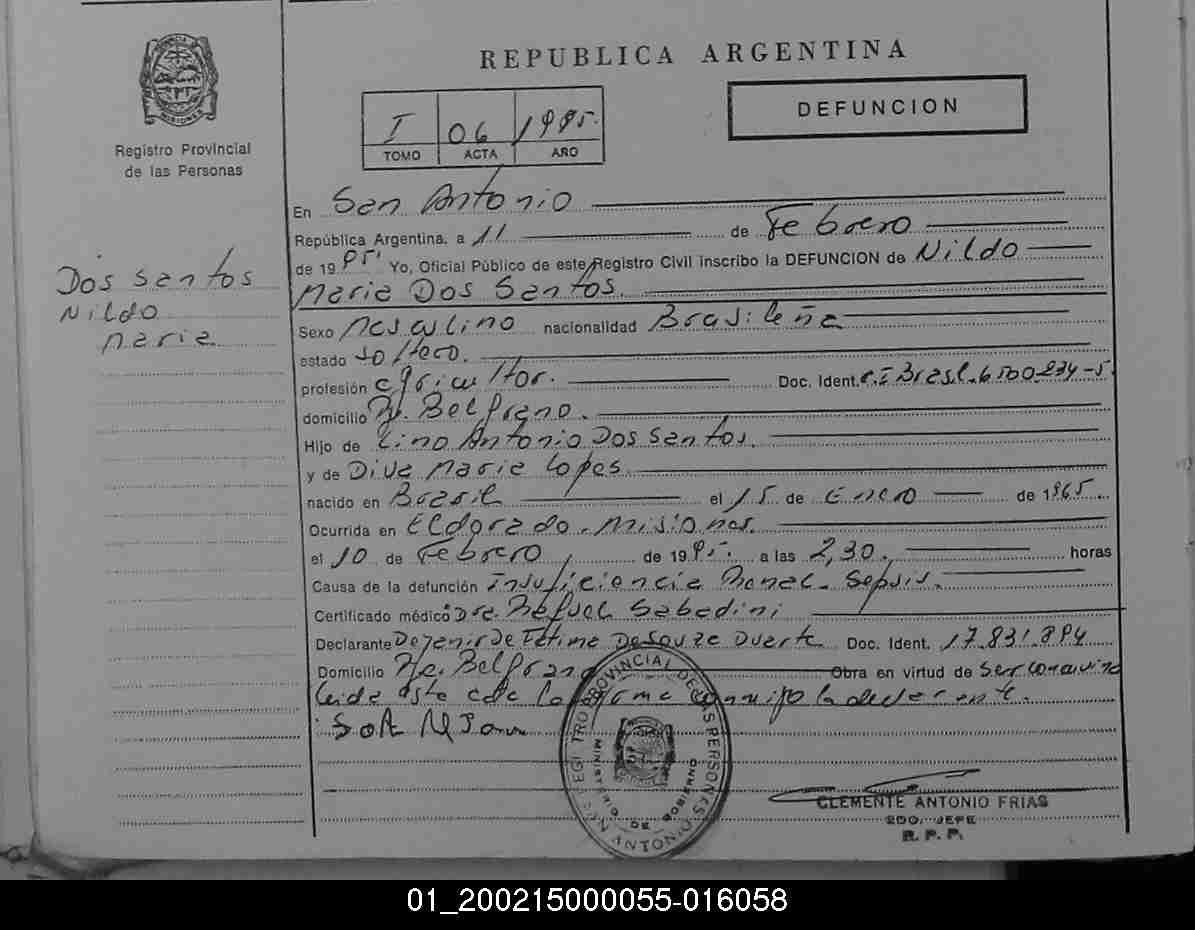 REPUBLICA ARGENTINA
DEFUNCION
PROVINCIA DE MISIONES
Registro Provincial
de las Personas
I 06 1995.
TOMO ACTA AÑO
Dos Santos
Nildo
Maria
En San Antonio
República Argentina, a 11 de Febrero
de 1995. Yo, Oficial Público de este Registro Civil inscribo la DEFUNCION de Nildo
Maria Dos Santos.
Sexo Masculino nacionalidad Brasileña
estado Soltero.
profesión agricultor. Doc. Ident. C.I Brasl. 6500234-5.
domicilio Belgrano.
Hijo de Lino Antonio Dos Santos.
y de Diva Maria Lopes
nacido en Brasil el 15 de Enero de 1965.
Ocurrida en Eldorado. Misiones.
el 10 de Febrero de 1995. a las 2,30. horas
Causa de la defunción Insuficiencia Renal. Sepsis.
Certificado médico Sabadini
Declarante Dejanir De Fatima De Souza Duarte Doc. Ident. 17.831.894
Domicilio Belgrano Obra en virtud de Ser
Leida este acta la firma conmigo la declarante.
REGISTRO PROVINCIAL DE LAS PERSONAS
MINISTERIO DE GOBIERNO
SAN ANTONIO
CLEMENTE ANTONIO FRIAS
2DO. JEFE
R. P. P.
01_200215000055-016058